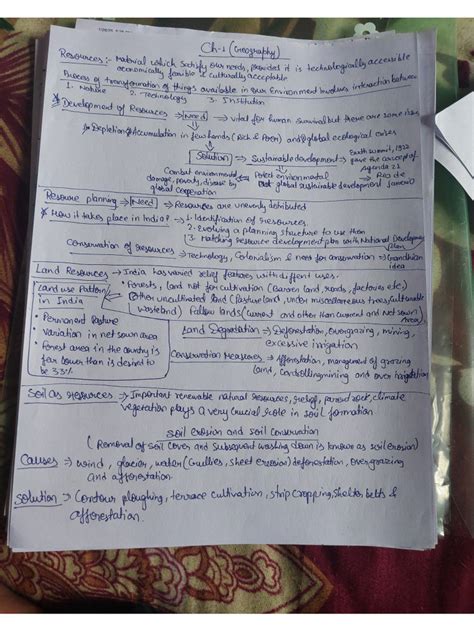 Ch-1 (Geography)
Resources:- Material which satisfy our needs, provided it is technologically accessible
economically feasible & culturally acceptable
Process of transformation of things available in our Environment involves interaction between
1. Nature 2. Technology 3. Institution
* Development of Resources → Need → vital for human survival but there are some issues
→ Depletion → Accumulation in few hands (Rich & Poor) and global ecological crises
Solution → Sustainable development → Earth summit, 1992
gave the concept of
Agenda 21
Combat environmental
damage, poverty, disease by
global cooperation
global sustainable development
Rio de
Janeiro
Resource planning → Need → Resources are unevenly distributed
* How it takes place in India? → 1. Identification of resources.
2. evolving a planning structure to use them
3. Matching resource development plan with National Development
Plan
Conservation of resources → Technology, Colonialism & need for conservation → Gandhian
idea
Land Resources → India has varied relief features with different uses.
Land use Pattern
in India
• Forests, land not for cultivation (Barren land, roads, factories etc.)
Other uncultivated land (Pasture land, under miscellaneous trees, culturable
wasteland) Fallow lands (current and other than current and Net sown
Area)
• Permanent Pasture
• Variation in net sown area
• Forest area in the country is
far lower than is desired to
be 33%
Land Degradation → Deforestation, overgrazing, mining,
excessive irrigation
Conservation Measures → Afforestation, management of grazing
land, controlling mining and over irrigation
Soil as Resources → Important renewable natural resources, relief, parent rock, climate
vegetation plays a very crucial role in soil formation
Soil erosion and soil conservation
(Removal of soil cover and subsequent washing down is known as soil erosion)
Causes → wind, glacier, water (Gullies, sheet erosion) deforestation, overgrazing
and afforestation.
Solution → Contour ploughing, terrace cultivation, strip cropping, Shelter belts &
afforestation.